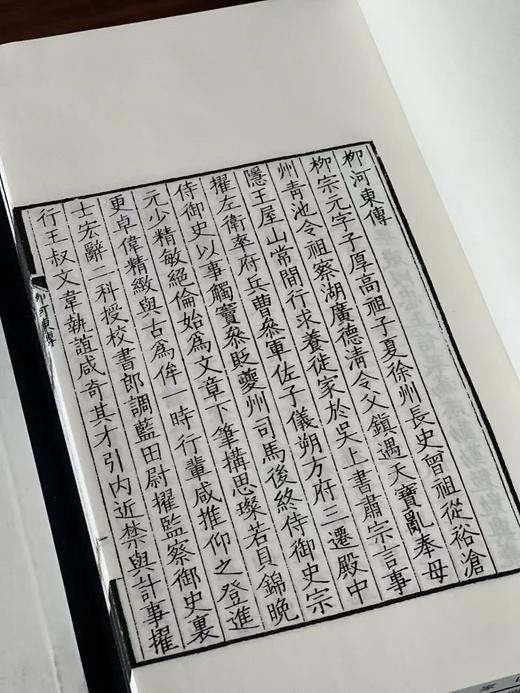 柳河東傳
柳宗元字子厚高祖子夏徐州長史曾祖從裕滄
州青池令祖察湖廣德清令父鎮遇天寶亂奉母
隱王屋山常間行求養徙家於吳上書肅宗言事
擢左衛率府兵曹叅軍佐子儀朔方府三遷殿中
侍御史以事觸竇叅貶夔州司馬後終侍御史宗
元少精敏絕倫始為文章下筆構思璨若貝錦晚
更卓偉精緻與古為侔一時行輩咸推仰之登進
士宏辭二科授校書郎調藍田尉擢監察御史裏
行王叔文韋執誼咸奇其才引內近禁與計事擢
柳河東傳
一